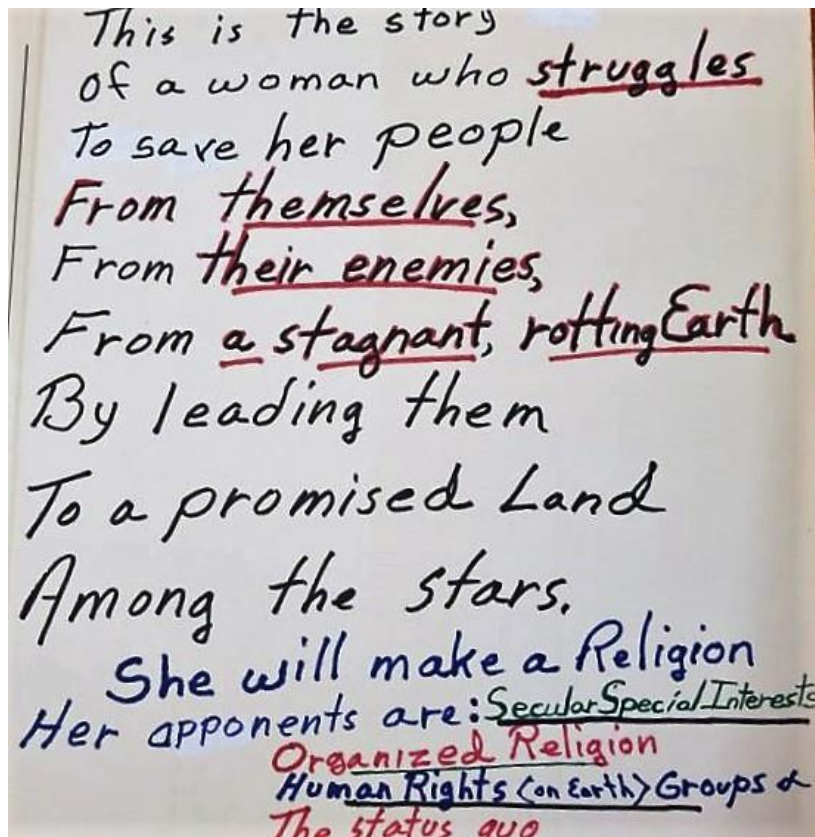 This is the story
of a woman who struggles
To save her people
From themselves,
From their enemies,
From a stagnant, rotting Earth
By leading them
To a promised Land
Among the stars.
She will make a Religion
Her opponents are: Secular Special Interests
Organized Religion
Human Rights (on Earth) Groups &
The status quo